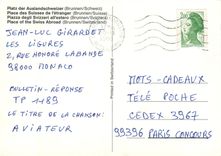 Platz der Auslandschweizer (Brunnen/Schweiz)
Place des Suisses de l'étranger (Brunnen/Suisse)
Piazza degli Svizzeri all'estero (Brunnen/Svizzera)
Place of the Swiss Abroad (Brunnen/Switzerland)
JEAN-LUC GIRARDET
LES LIGURES
2, RUE HONORÉ LABANDE
98000 MONACO
BULLETIN-RÉPONSE
TP 1189
LE TITRE DE LA CHANSON:
AVIATEUR
Printed in Switzerland
MOTS-CADEAUX
TÉLÉ POCHE
CEDEX 3967
99396 PARIS CONCOURS